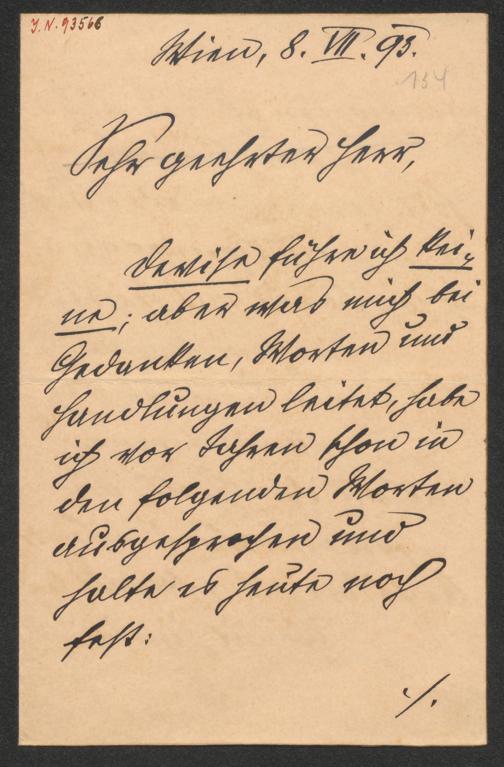 J. N. 93566
Wien, 8. VII. 93.
154
Sehr geehrter Herr,
Devise führe ich kei-
ne; aber was mich bei
Gedanken, Worten und
Handlungen leitet, habe
ich vor Jahren schon in
den folgenden Worten
ausgesprochen und
halte es heute noch
fest:
./.